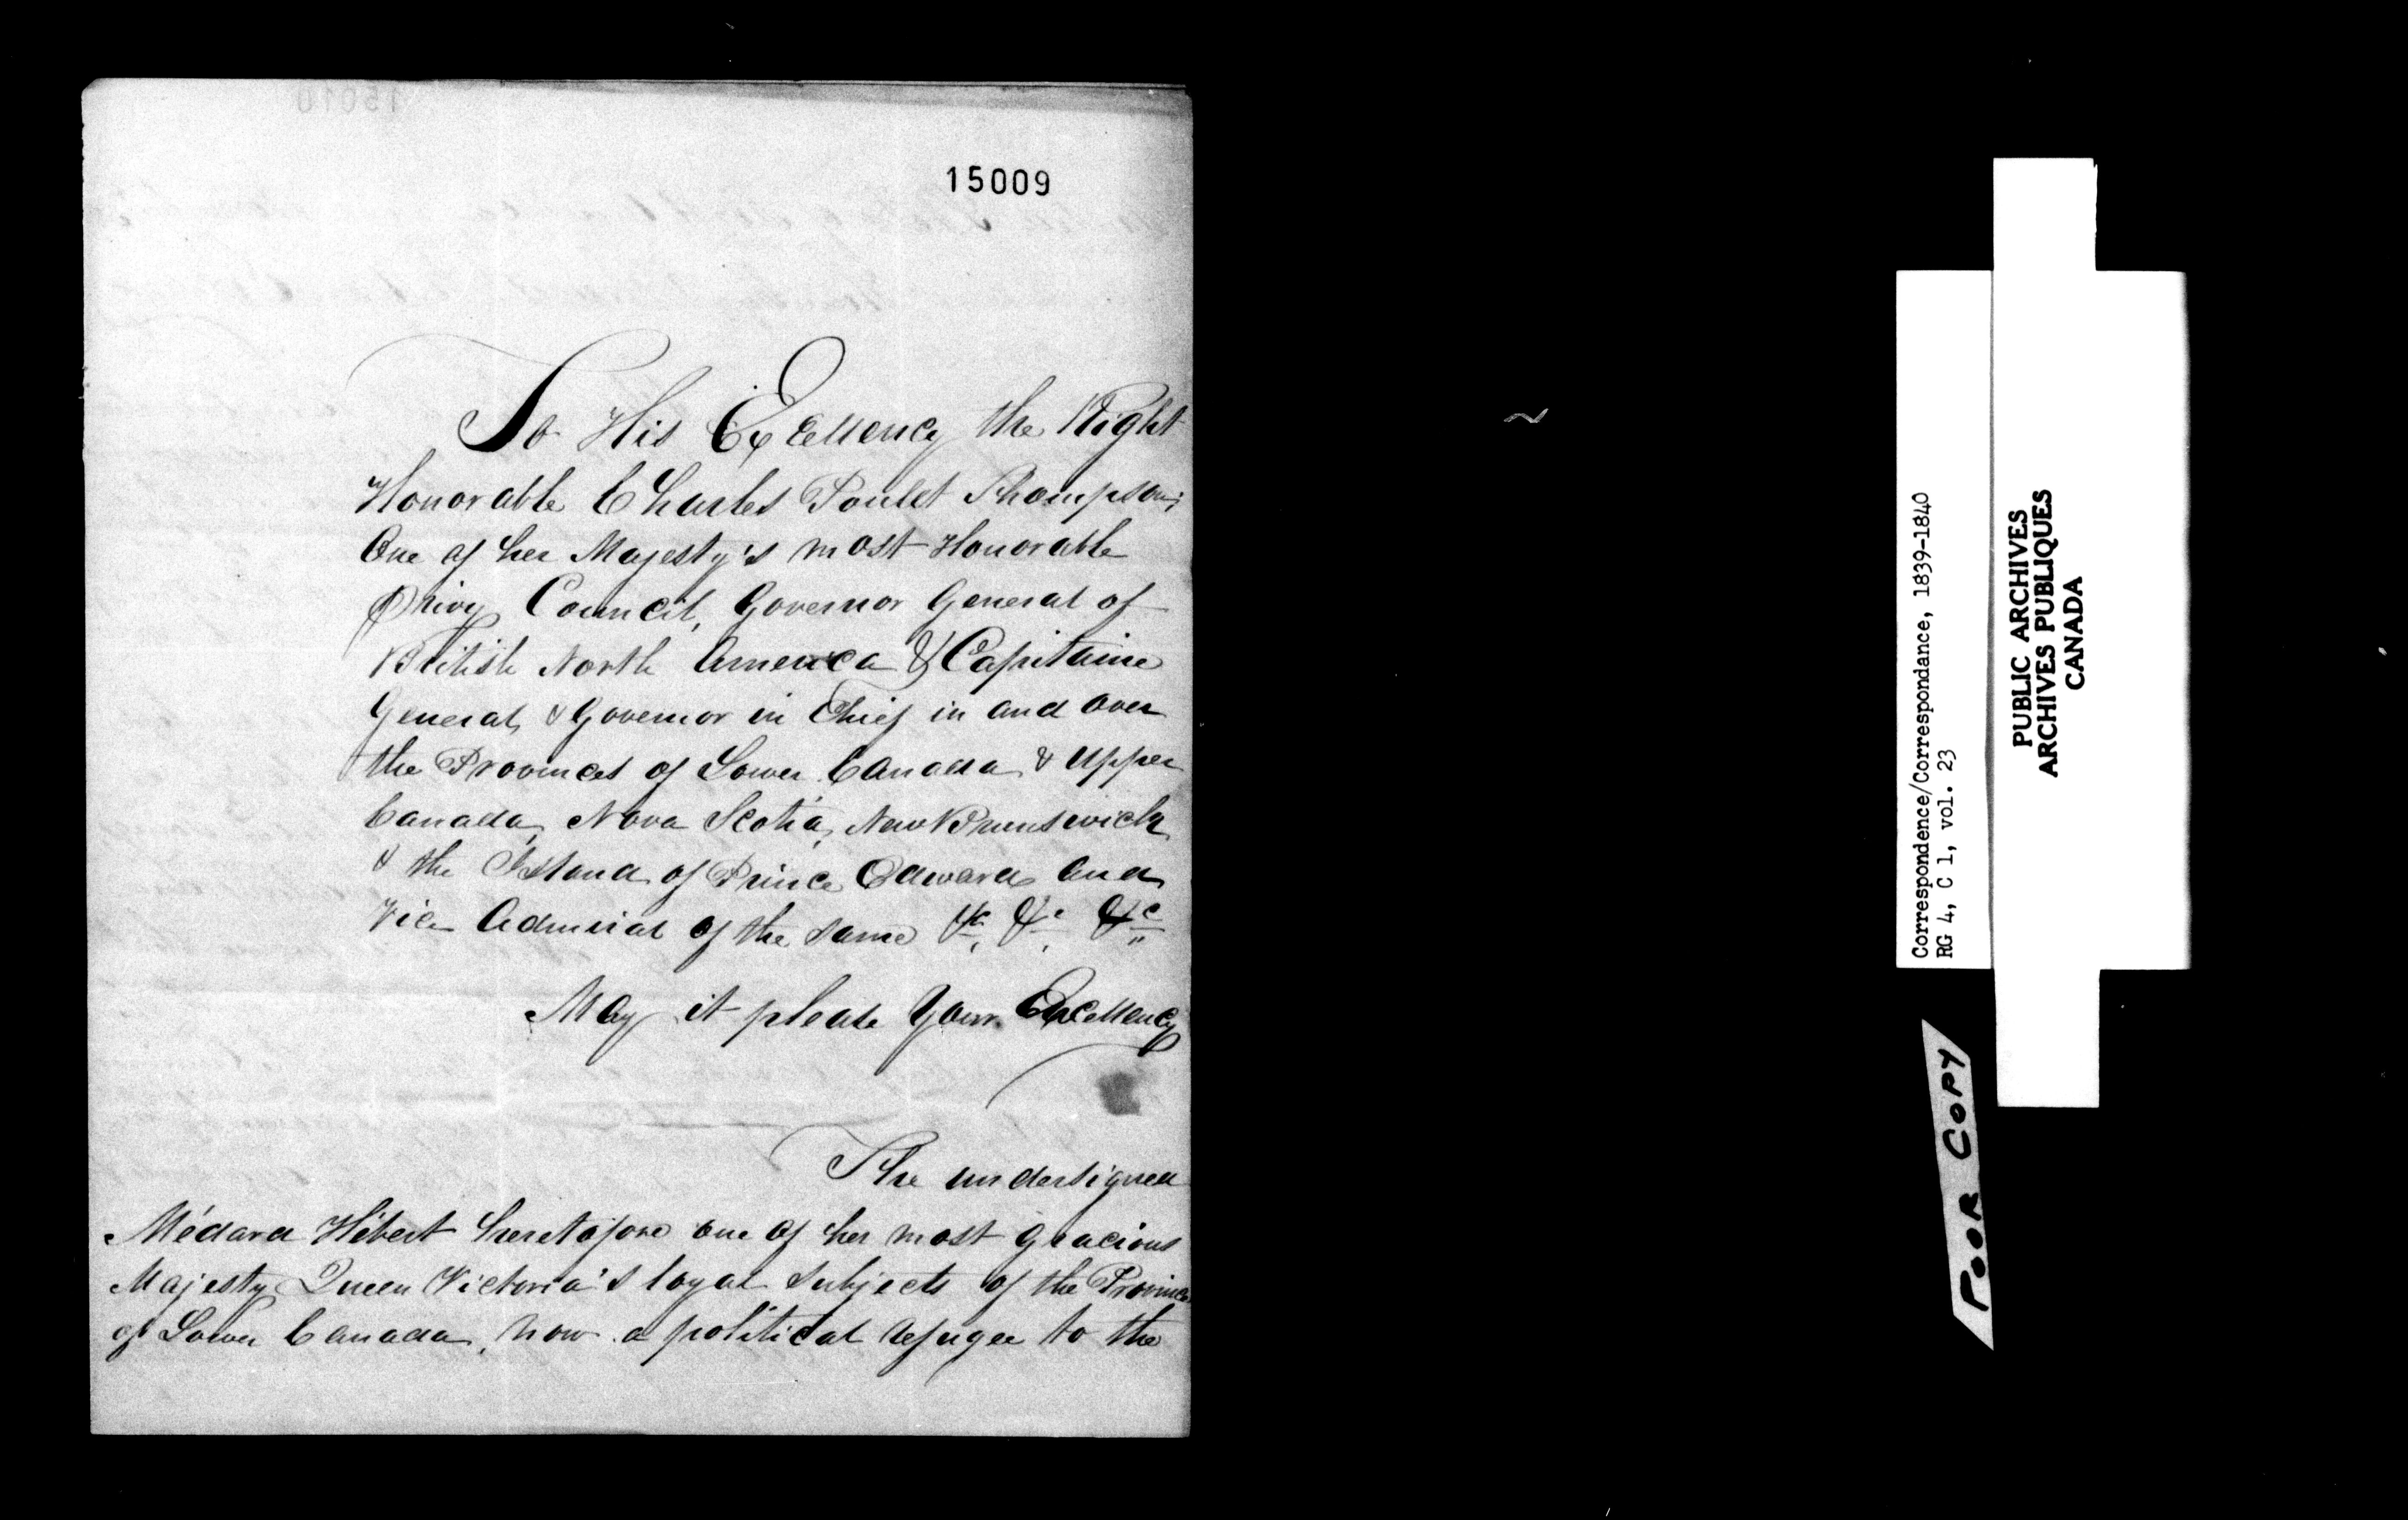 15009
To His Excellency the Right
Honorable Charles Poulet Thompson;
One of her Majesty's most Honorable
Privy Council, Governor General of
British North America & Capitaine
General, & Governor in Chief in and over
the Provinces of Lower Canada & Upper
Canada, Nova Scotia, New Brunswick
& the Island of Prince Edward and
Vice Admiral of the same &c &c &c
May it please Your Excellency
The undersigned
Médard Hébert heretofore one of her most gracious
Majesty Queen Victoria's loyal subjects of the Province
of Lower Canada, now a political refugee to the
Correspondence/Correspondance, 1839-1840
RG 4, C 1, vol. 23
PUBLIC ARCHIVES
ARCHIVES PUBLIQUES
CANADA
POOR COPY